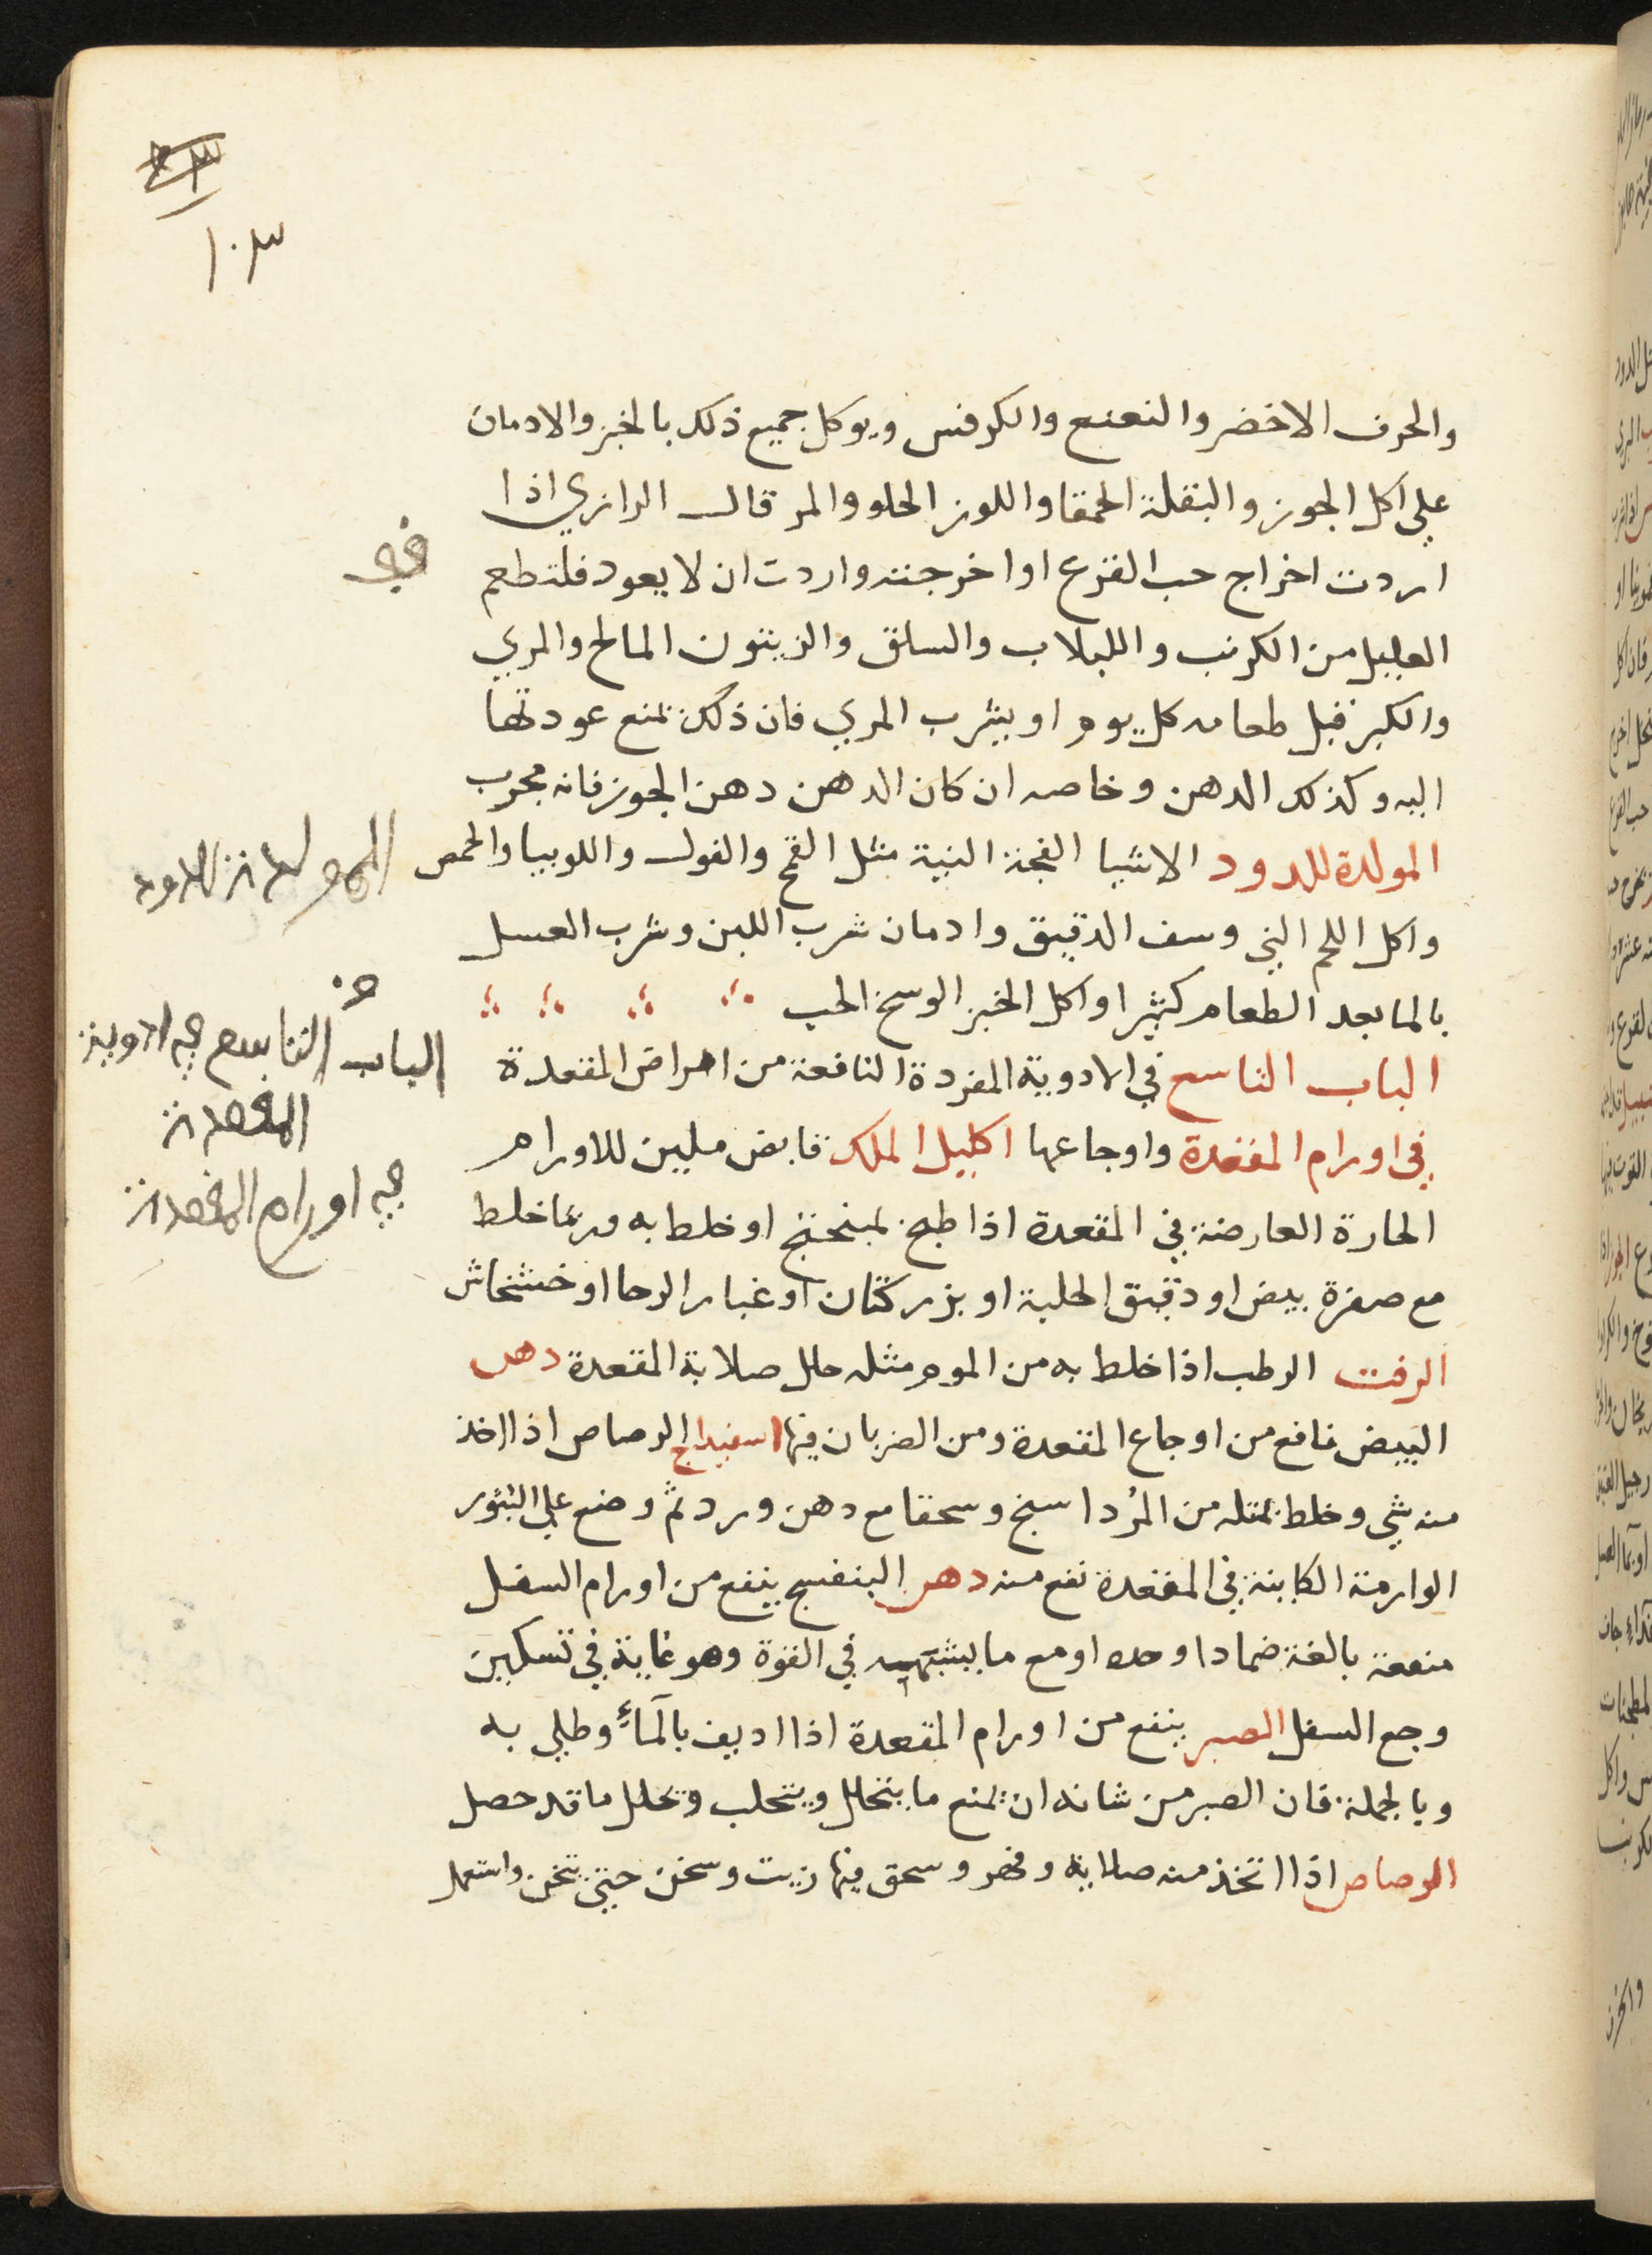 ١٠٣
والحرف الاخضر والنعنع والكرفس ويوكل جميع ذلك بالخبز والادمان
علي اكل الجوز والبقلة الحمقا واللوز الحلو والمر قال الرازي اذا
اردت اخراج حب القرع او اخرجته واردت ان لا يعود فلتطعم
العليل من الكرنب واللبلاب والسلق والزيتون المالح والمري
والكبر قبل طعامه كل يوم او يشرب المري فان ذلك يمنع عودتها
اليه وكذلك الدهن وخاصه ان كان الدهن دهن الجوز فانه مجرب
المولدة للدود الاشيا الفجة النية مثل القمح والفول واللوبيا والحمص
واكل اللحم الني وسف الدقيق وادمان شرب اللبن وشرب العسل
بالما بعد الطعام كثيرا واكل الخبز الوسخ الحب
الباب التاسع في الادوية المفردة النافعة من امراض المقعدة
في اورام المقعدة واوجاعها اكليل الملك قابض ملين للاورام
الحارة العارضة في المقعدة اذا طبخ بمبنحتج او خلط به وربما خلط
مع صفرة بيض او دقيق الحلبة او بزر كتان او غبار الرحا او خشخاش
الزفت الرطب اذا خلط به من الموم مثله حلل صلابة المقعدة دهن
البيض نافع من اوجاع المقعدة ومن الضربان فيها اسفيداج الرصاص اذا اخذ
منه شي وخلط بمثله من المُرداسنج وسحقا مع دهن ورد ثم وضع علي البثور
الوارمة الكاينة في المقعدة نفع منه دهن البنفسج ينفع من اورام السفل
منفعة بالغة ضمادا وحده او مع ما يشبهه في القوة وهو غاية في تسكين
وجع السفل الصبر ينفع من اورام المقعدة اذا اديف بالمآء وطلي به
وبالجملة فان الصبر من شانه ان يمنع ما يتحلل ويتحلب ويحلل ما قد حصل
الرصاص اذا اتخذ منه صلاية وفهر وسحق فيها زيت وسخن حتي يثخن واستعمل
في
المولدة للدود
الباب التاسع في ادوية
المقعدة
في اورام المقعدة